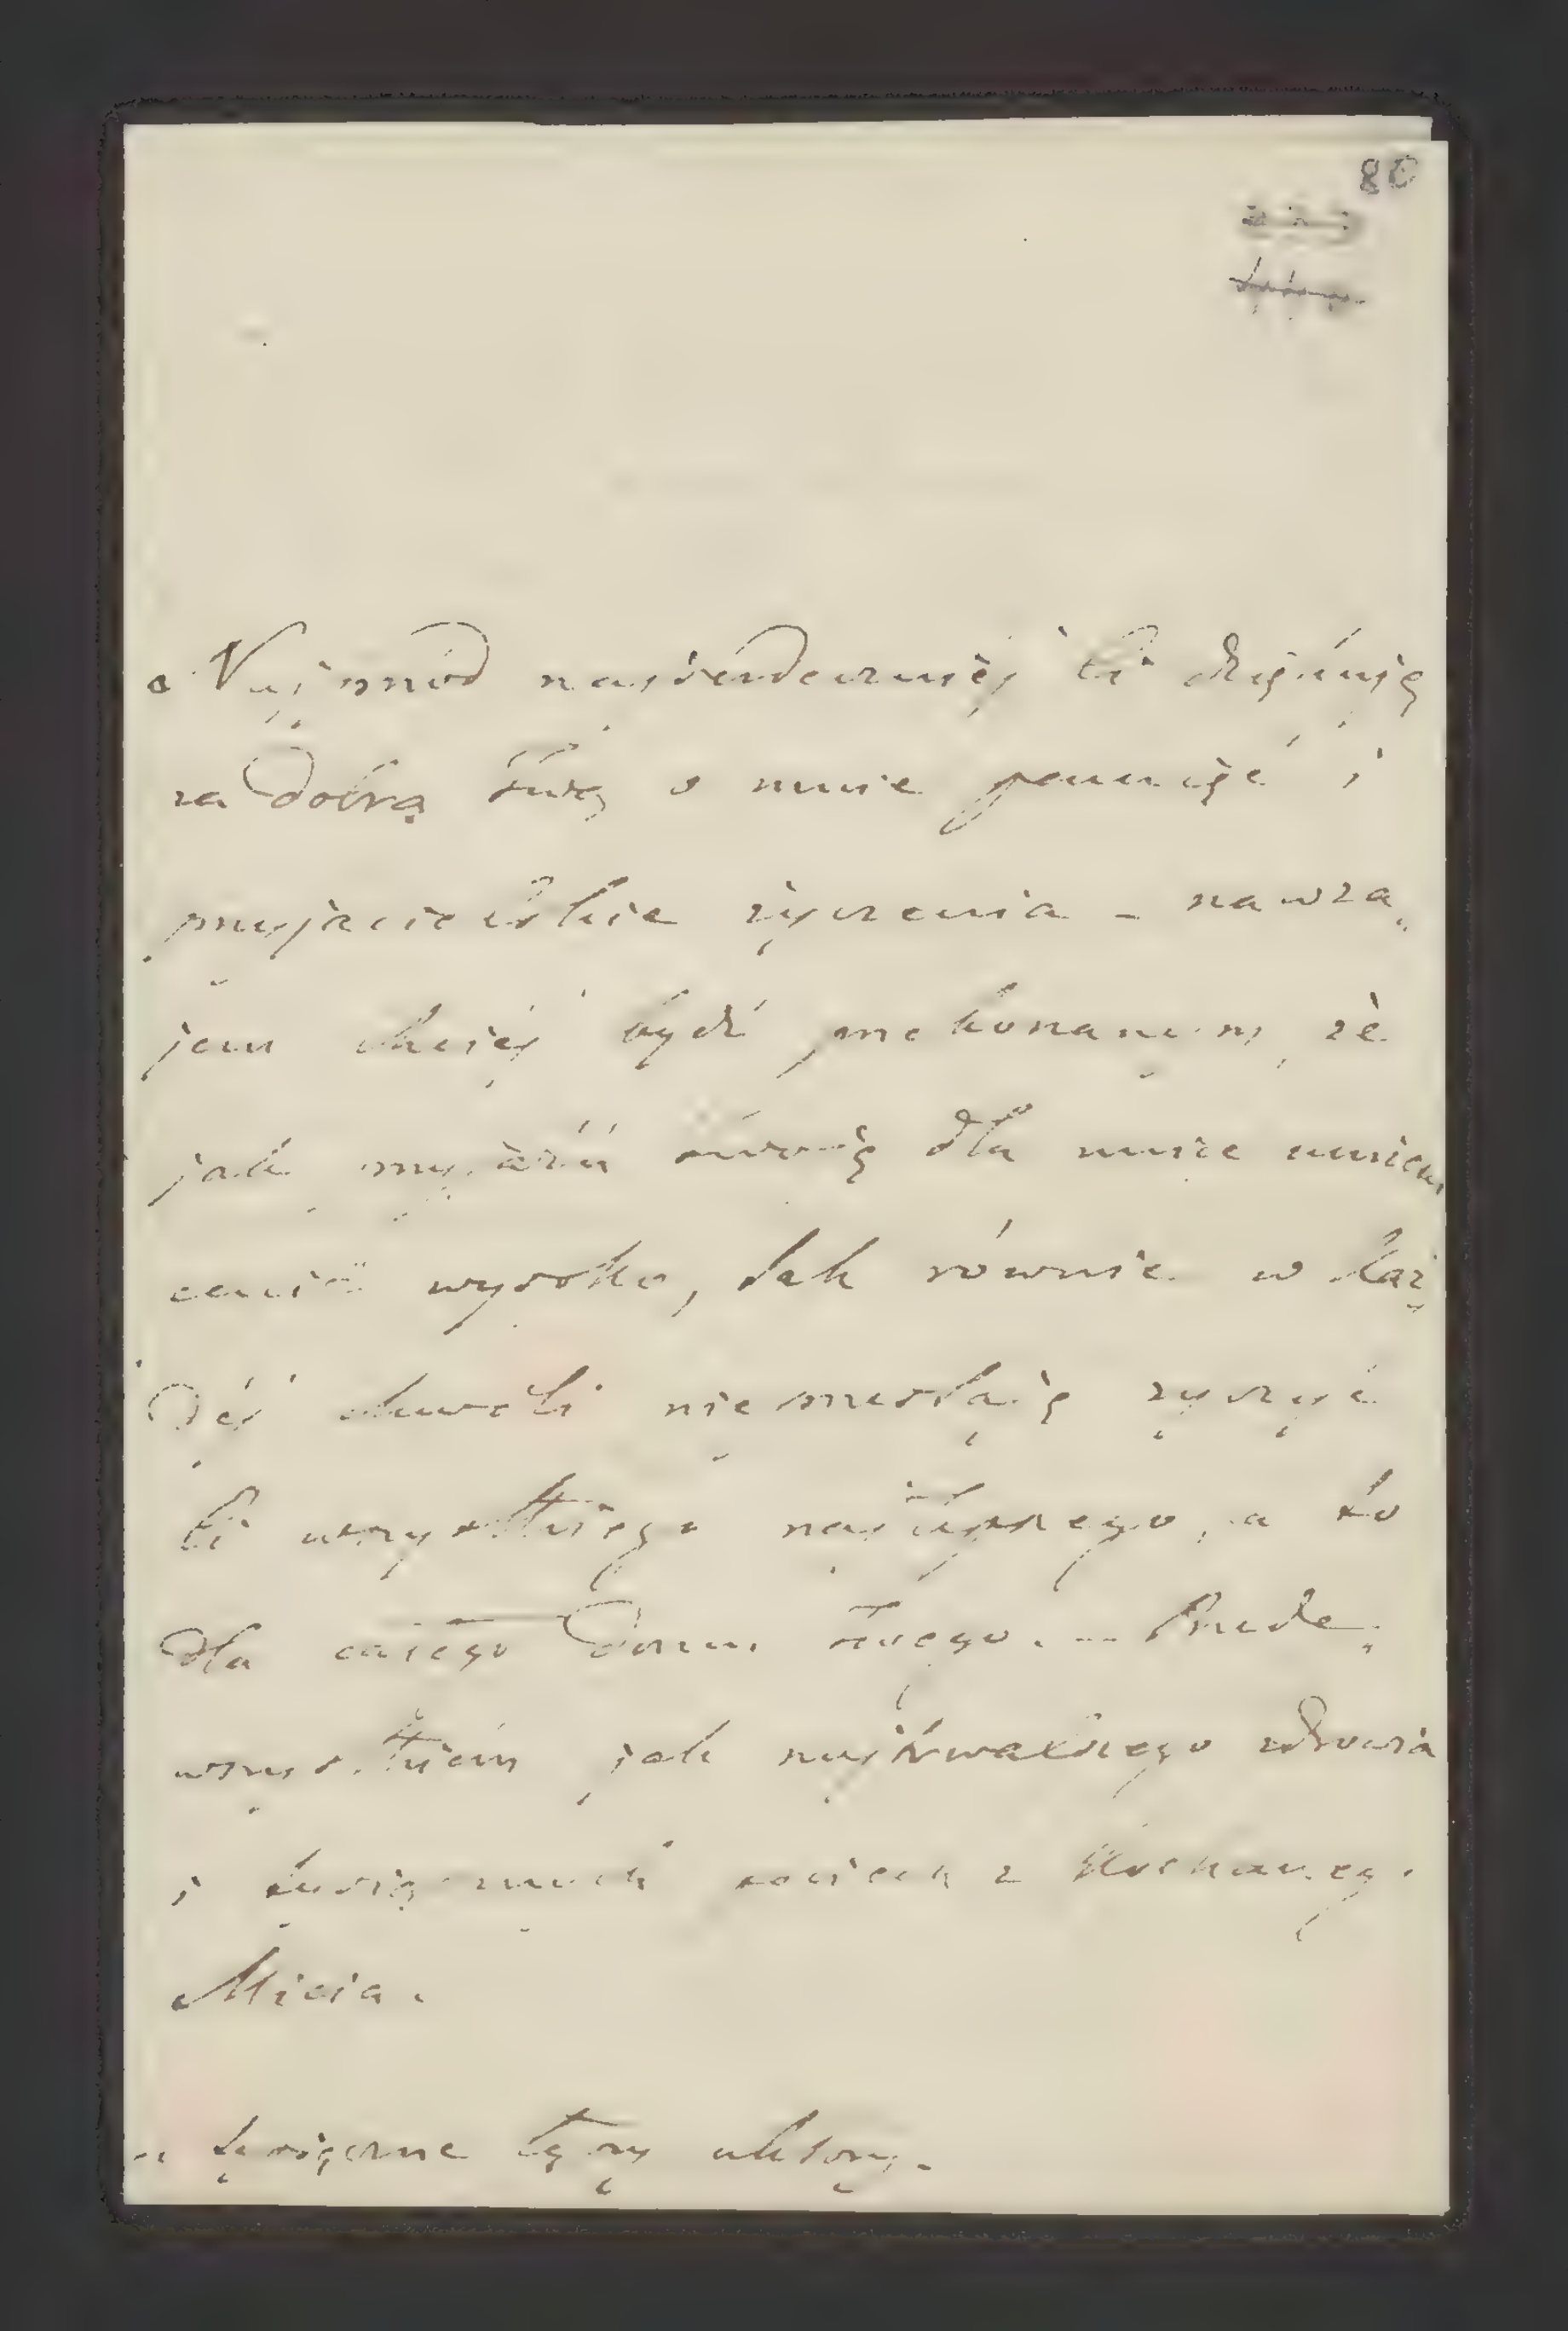 80
Najprzód najserdeczniej Ci dziękuję
za dobrą Twą o mnie pamięć i
przyjacielskie życzenia – nawza„
jem chciej bydź przekonanym, że
jak przyjaźń Twoją dla mnie umiem
cenić wysoko, tak równie w każ„
dej chwili nieprzestaję życzyć
Ci wszystkiego najlepszego, a to
dla całego Domu Twego. — Przede„
wszystkiem jak najtrwalszego zdrowia
i tysiącznych pociech z Kochanego
Micia.
tysiączne łączy ukłony.